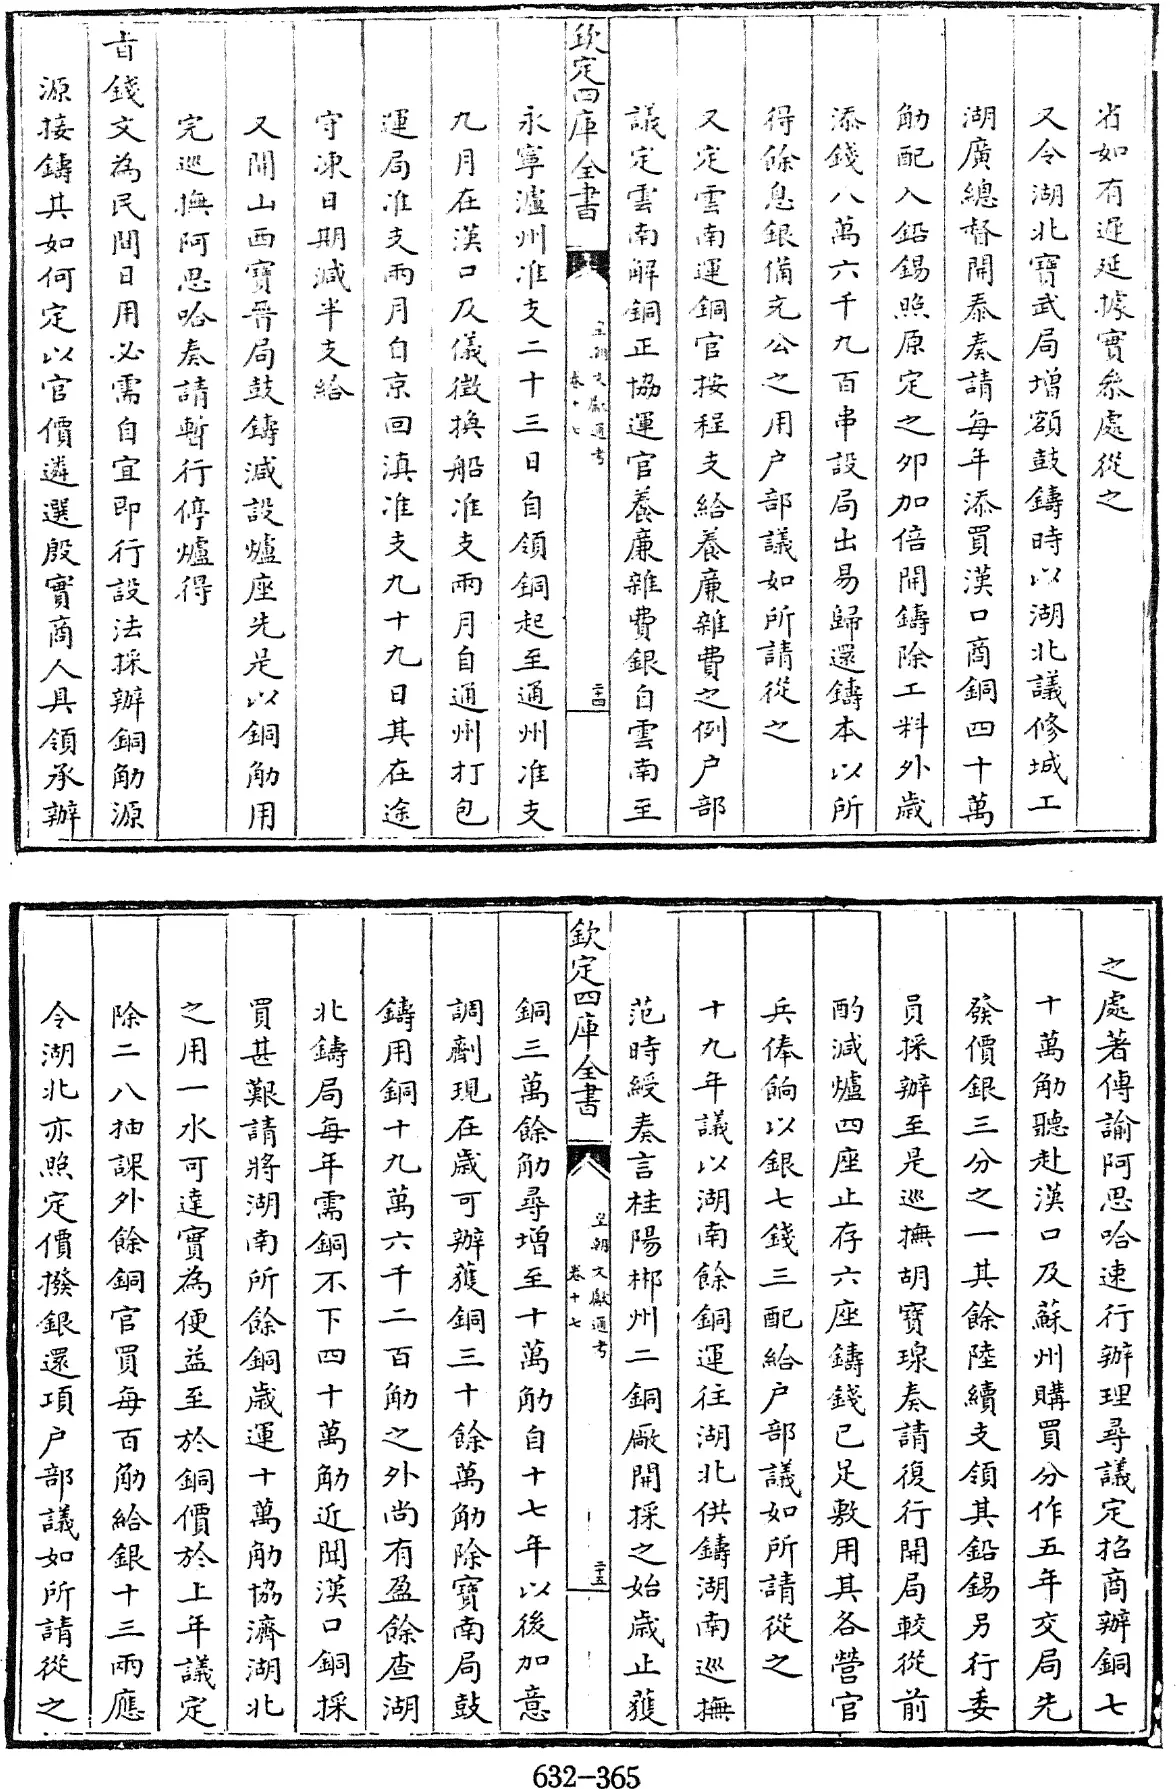 省如有遲延據實叅處從之
又令湖北寳武局增額鼓鑄時以湖北議修城工
湖廣總督開泰奏請每年添買漢口商銅四十萬
觔配入鉛錫照原定之卯加倍開鑄除工料外歳
添錢八萬六千九百串設局出易歸還鑄本以所
得餘息銀備充公之用户部議如所請從之
又定雲南運銅官按程支給養廉雜費之例户部
議定雲南解銅正協運官養廉雜費銀自雲南至
欽定四庫全書
皇朝文獻通考
卷十七
二十四
永寧瀘州准支二十三日自領銅起至通州准支
九月在漢口及儀徴換船准支兩月自通州打包
運局准支兩月自京回滇准支九十九日其在途
守凍日期減半支給
又開山西寳晉局鼓鑄減設爐座先是以銅觔用
完巡撫阿思哈奏請暫行停爐得
㫖錢文為民間日用必需自宜即行設法採辦銅觔源
源接鑄其如何定以官價遴選殷實商人具領承辦
之處著傳諭阿思哈速行辦理尋議定招商辦銅七
十萬觔聽赴漢口及蘇州購買分作五年交局先
發價銀三分之一其餘陸續支領其鉛錫另行委
員採辦至是巡撫胡寳瑔奏請復行開局較從前
酌減爐四座止存六座鑄錢已足敷用其各營官
兵俸餉以銀七錢三配給户部議如所請從之
十九年議以湖南餘銅運往湖北供鑄湖南巡撫
范時綬奏言桂陽郴州二銅厰開採之始歳止獲
欽定四庫全書
皇朝文獻通考
卷十七
二十五
銅三萬餘觔尋增至十萬觔自十七年以後加意
調劑現在歳可辦獲銅三十餘萬觔除寳南局鼓
鑄用銅十九萬六千二百觔之外尚有盈餘查湖
北鑄局每年需銅不下四十萬觔近聞漢口銅採
買甚艱請將湖南所餘銅歳運十萬觔協濟湖北
之用一水可達實為便益至於銅價於上年議定
除二八抽課外餘銅官買每百觔給銀十三兩應
令湖北亦照定價撥銀還項户部議如所請從之
632-365